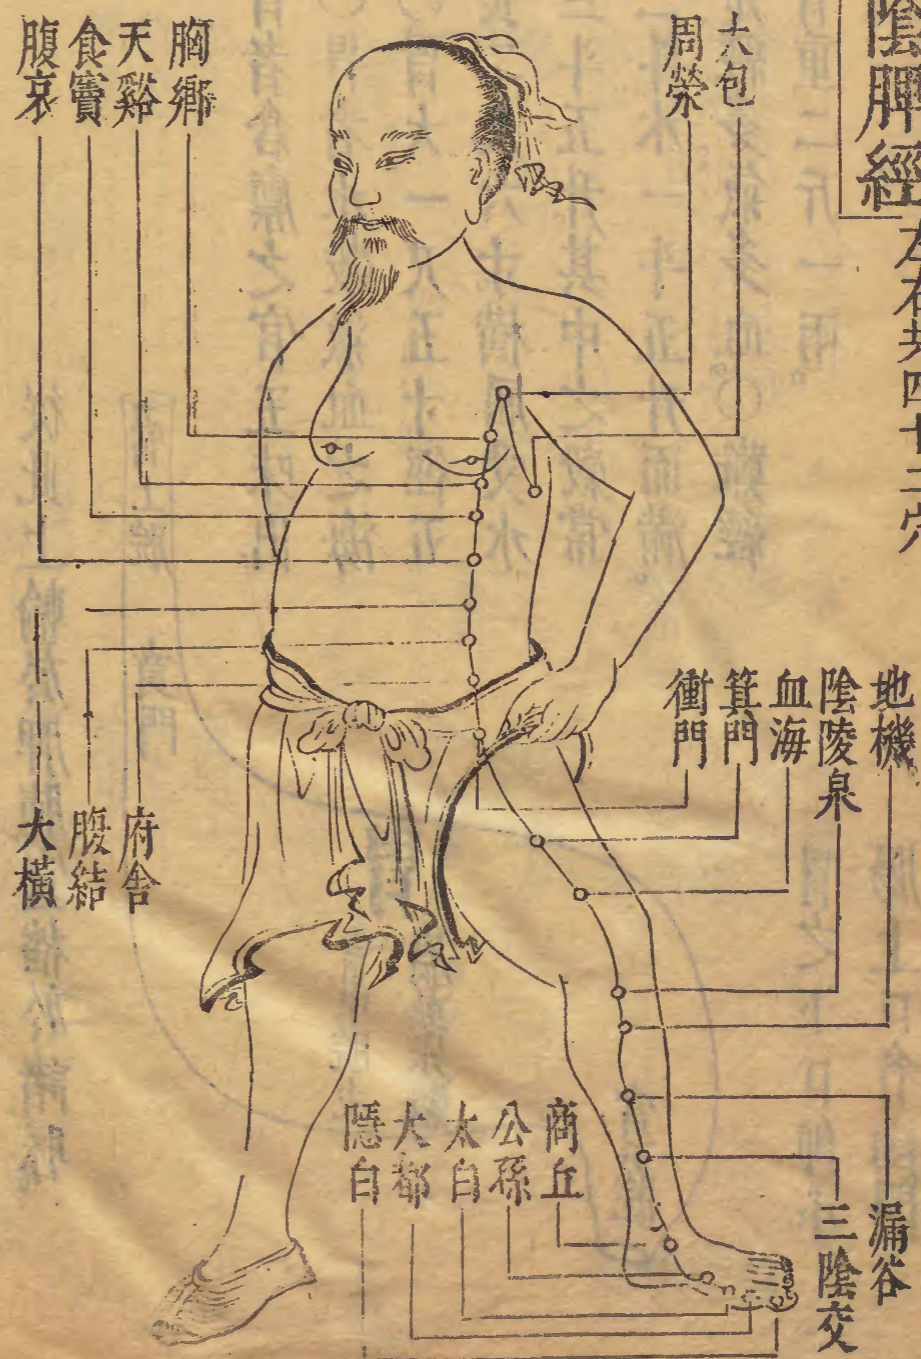 陰脾經
左右共四十二穴
大包
周榮
胸鄉
天谿
食竇
腹哀
地機
陰陵泉
血海
箕門
衝門
府舍
腹結
大橫
漏谷
三陰交
商丘
公孫
太白
大都
隱白